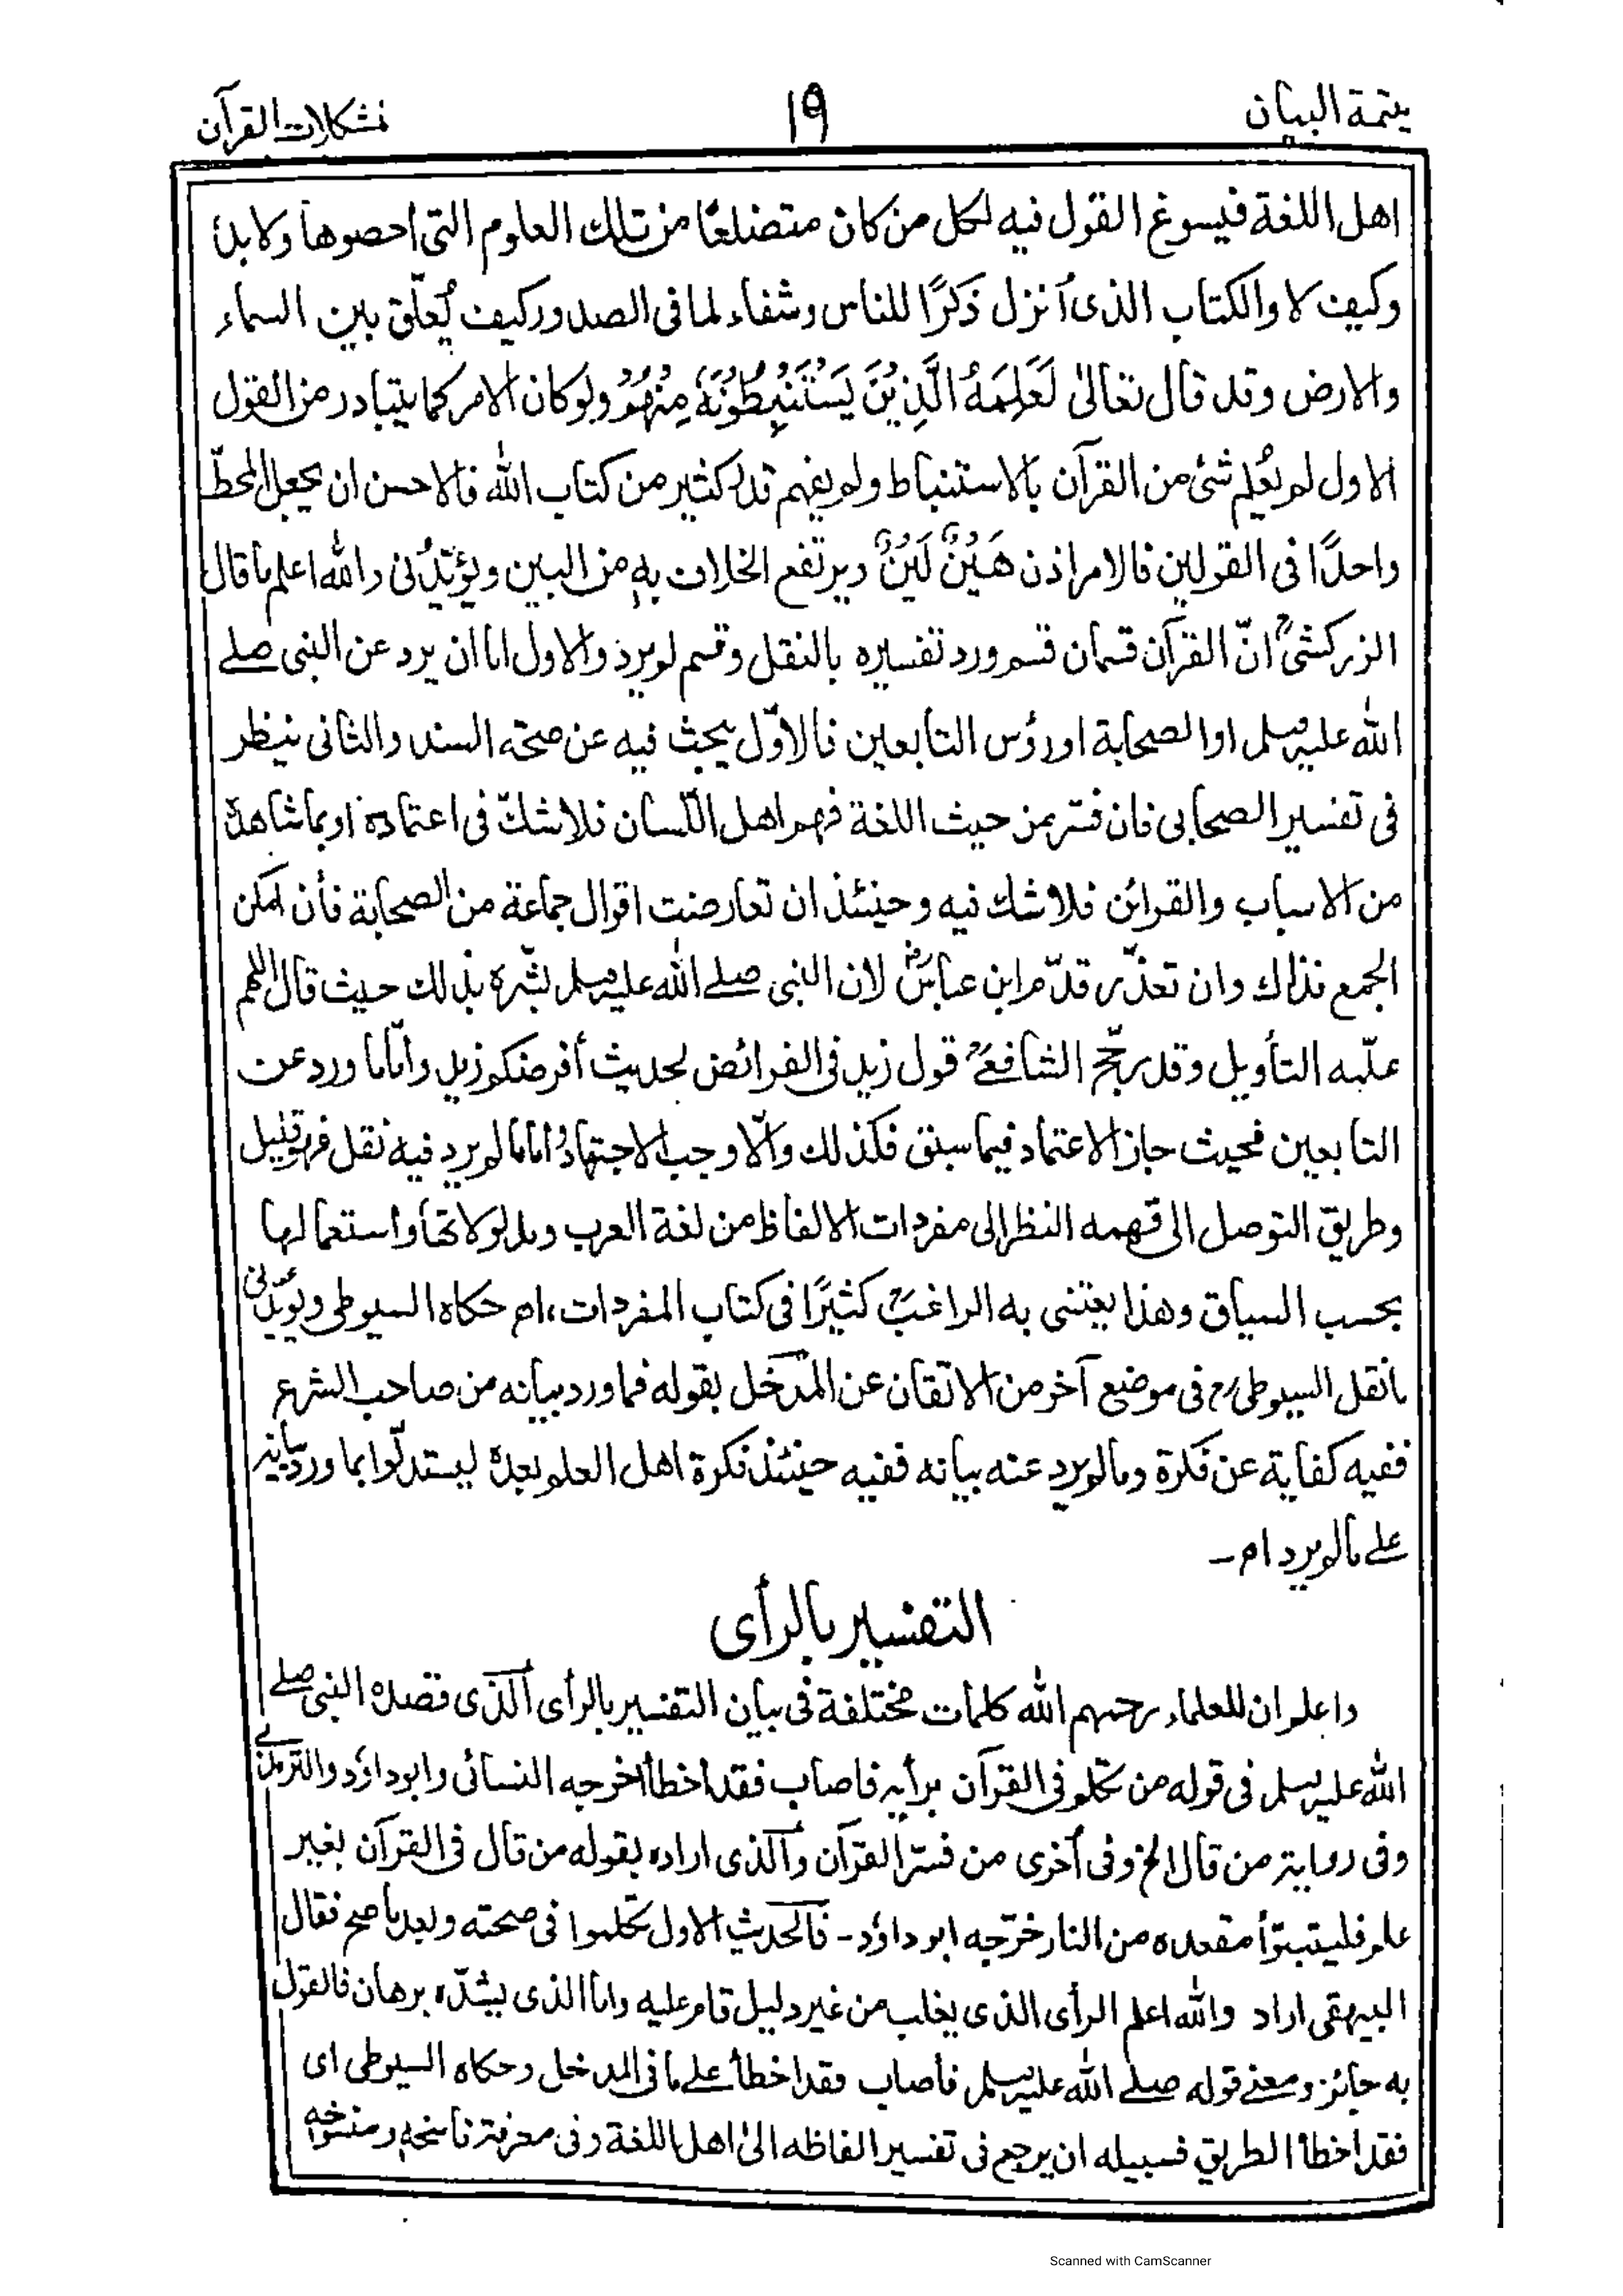 يتيمة البيان
١٩
مشكلات القرآن
اهل اللغة فيسوغ القول فيه لكل من كان متضلعًا من تلك العلوم التى احصوها ولا بدّ
وكيف لا والكتاب الذى أنزل ذكرًا للناس وشفاء لما فى الصدور كيف يُعلّق بين السماء
والارض وقد قال تعالىٰ لَعَلِمَهُ الَّذِيْنَ يَسْتَنْبِطُوْنَهٗ مِنْهُمْ ولو كان الامر كما يتبادر من القول
الاول لم يُعلم شئ من القرآن بالاستنباط ولم يفهم قدر كثير من كتاب الله فالاحسن ان يجعل المحطّ
واحدًا فى القولين فالامر اذن هَيْنٌ لَيْنٌ ويرتفع الخلاف به من البين ويؤيّدنى والله اعلم ما قال
الزركشىؒ انّ القرآن قسمان قسم ورد تفسيره بالنقل وقسم لم يرد والاول اما ان يرد عن النبى صلے
الله عليہ وسلم او الصحابة او رؤس التابعين فالاوّل يبحث فيه عن صحة السند والثانى ينظر
فى تفسير الصحابى فان فسّر من حيث اللغة فهم اهل اللّسان فلا شكّ فى اعتماده او بما شاهدهٗ
من الاسباب والقرائن فلا شك فيه وحينئذ ان تعارضت اقوال جماعة من الصحابة فأن امكن
الجمع فذاك وان تعذّر قدّم ابن عباسؓ لان النبى صلے الله عليہ وسلم بشّره بذلك حيث قال اللهم
علّمه التأويل وقد رجّح الشافعےؒ قول زيد فى الفرائض لحديث أفرضكم زيد وأمّا ما ورد عن
التابعين فحيث جاز الاعتماد فيما سبق فكذلك والّا وجب الاجتهادُ اما ما لم يرد فيه نقل فهو قليل
وطريق التوصل الى فهمه النظر الى مفردات الالفاظ من لغة العرب ومدلولاتها واستعمالها
بحسب السياق وهذا يعتنى به الراغبؒ كثيرًا فى كتاب المفردات، اه حكاه السيوطى ويؤيّدنى
ما نقل السيوطىؒ فى موضع آخر من الاتقان عن المدخل بقوله فما ورد بيانه من صاحب الشرع
ففيه كفاية عن فكرة وما لم يرد عنه بيانه ففيه حينئذ فكرة اهل العلم بعدهٗ ليستدلّوا بما ورد بيانه
علے ما لم يرد اه ـ
التفسير بالرأى
واعلم ان للعلماء رحمهم الله كلمات مختلفة فى بيان التفسير بالرأى الّذى قصده النبى صلے
الله عليہ وسلم فى قوله من تكلم فى القرآن برأيہ فاصاب فقد اخطأ اخرجه النسائى وابو داؤد والترمذے
وفى رواية من قال الخ وفى أخرى من فسّر القرآن والّذى اراده بقوله من قال فى القرآن بغير
علم فليتبوّأ مقعده من النار خرّجه ابو داؤد ـ فالحديث الاول تكلموا فى صحته وبعد ما صح فقال
البيهقى اراد والله اعلم الرأى الذى يغلب من غير دليل قام عليه واما الذى يشدّه برهان فالقول
به جائز ومعنے قوله صلے الله عليہ وسلم فأصاب فقد اخطأ علے ما فى المدخل وحكاه السيوطى اى
فقد اخطأ الطريق فسبيله ان يرجع فى تفسير الفاظه الىٰ اهل اللغة وفى معرفة ناسخہٖ ومنسوخہ
Scanned with CamScanner